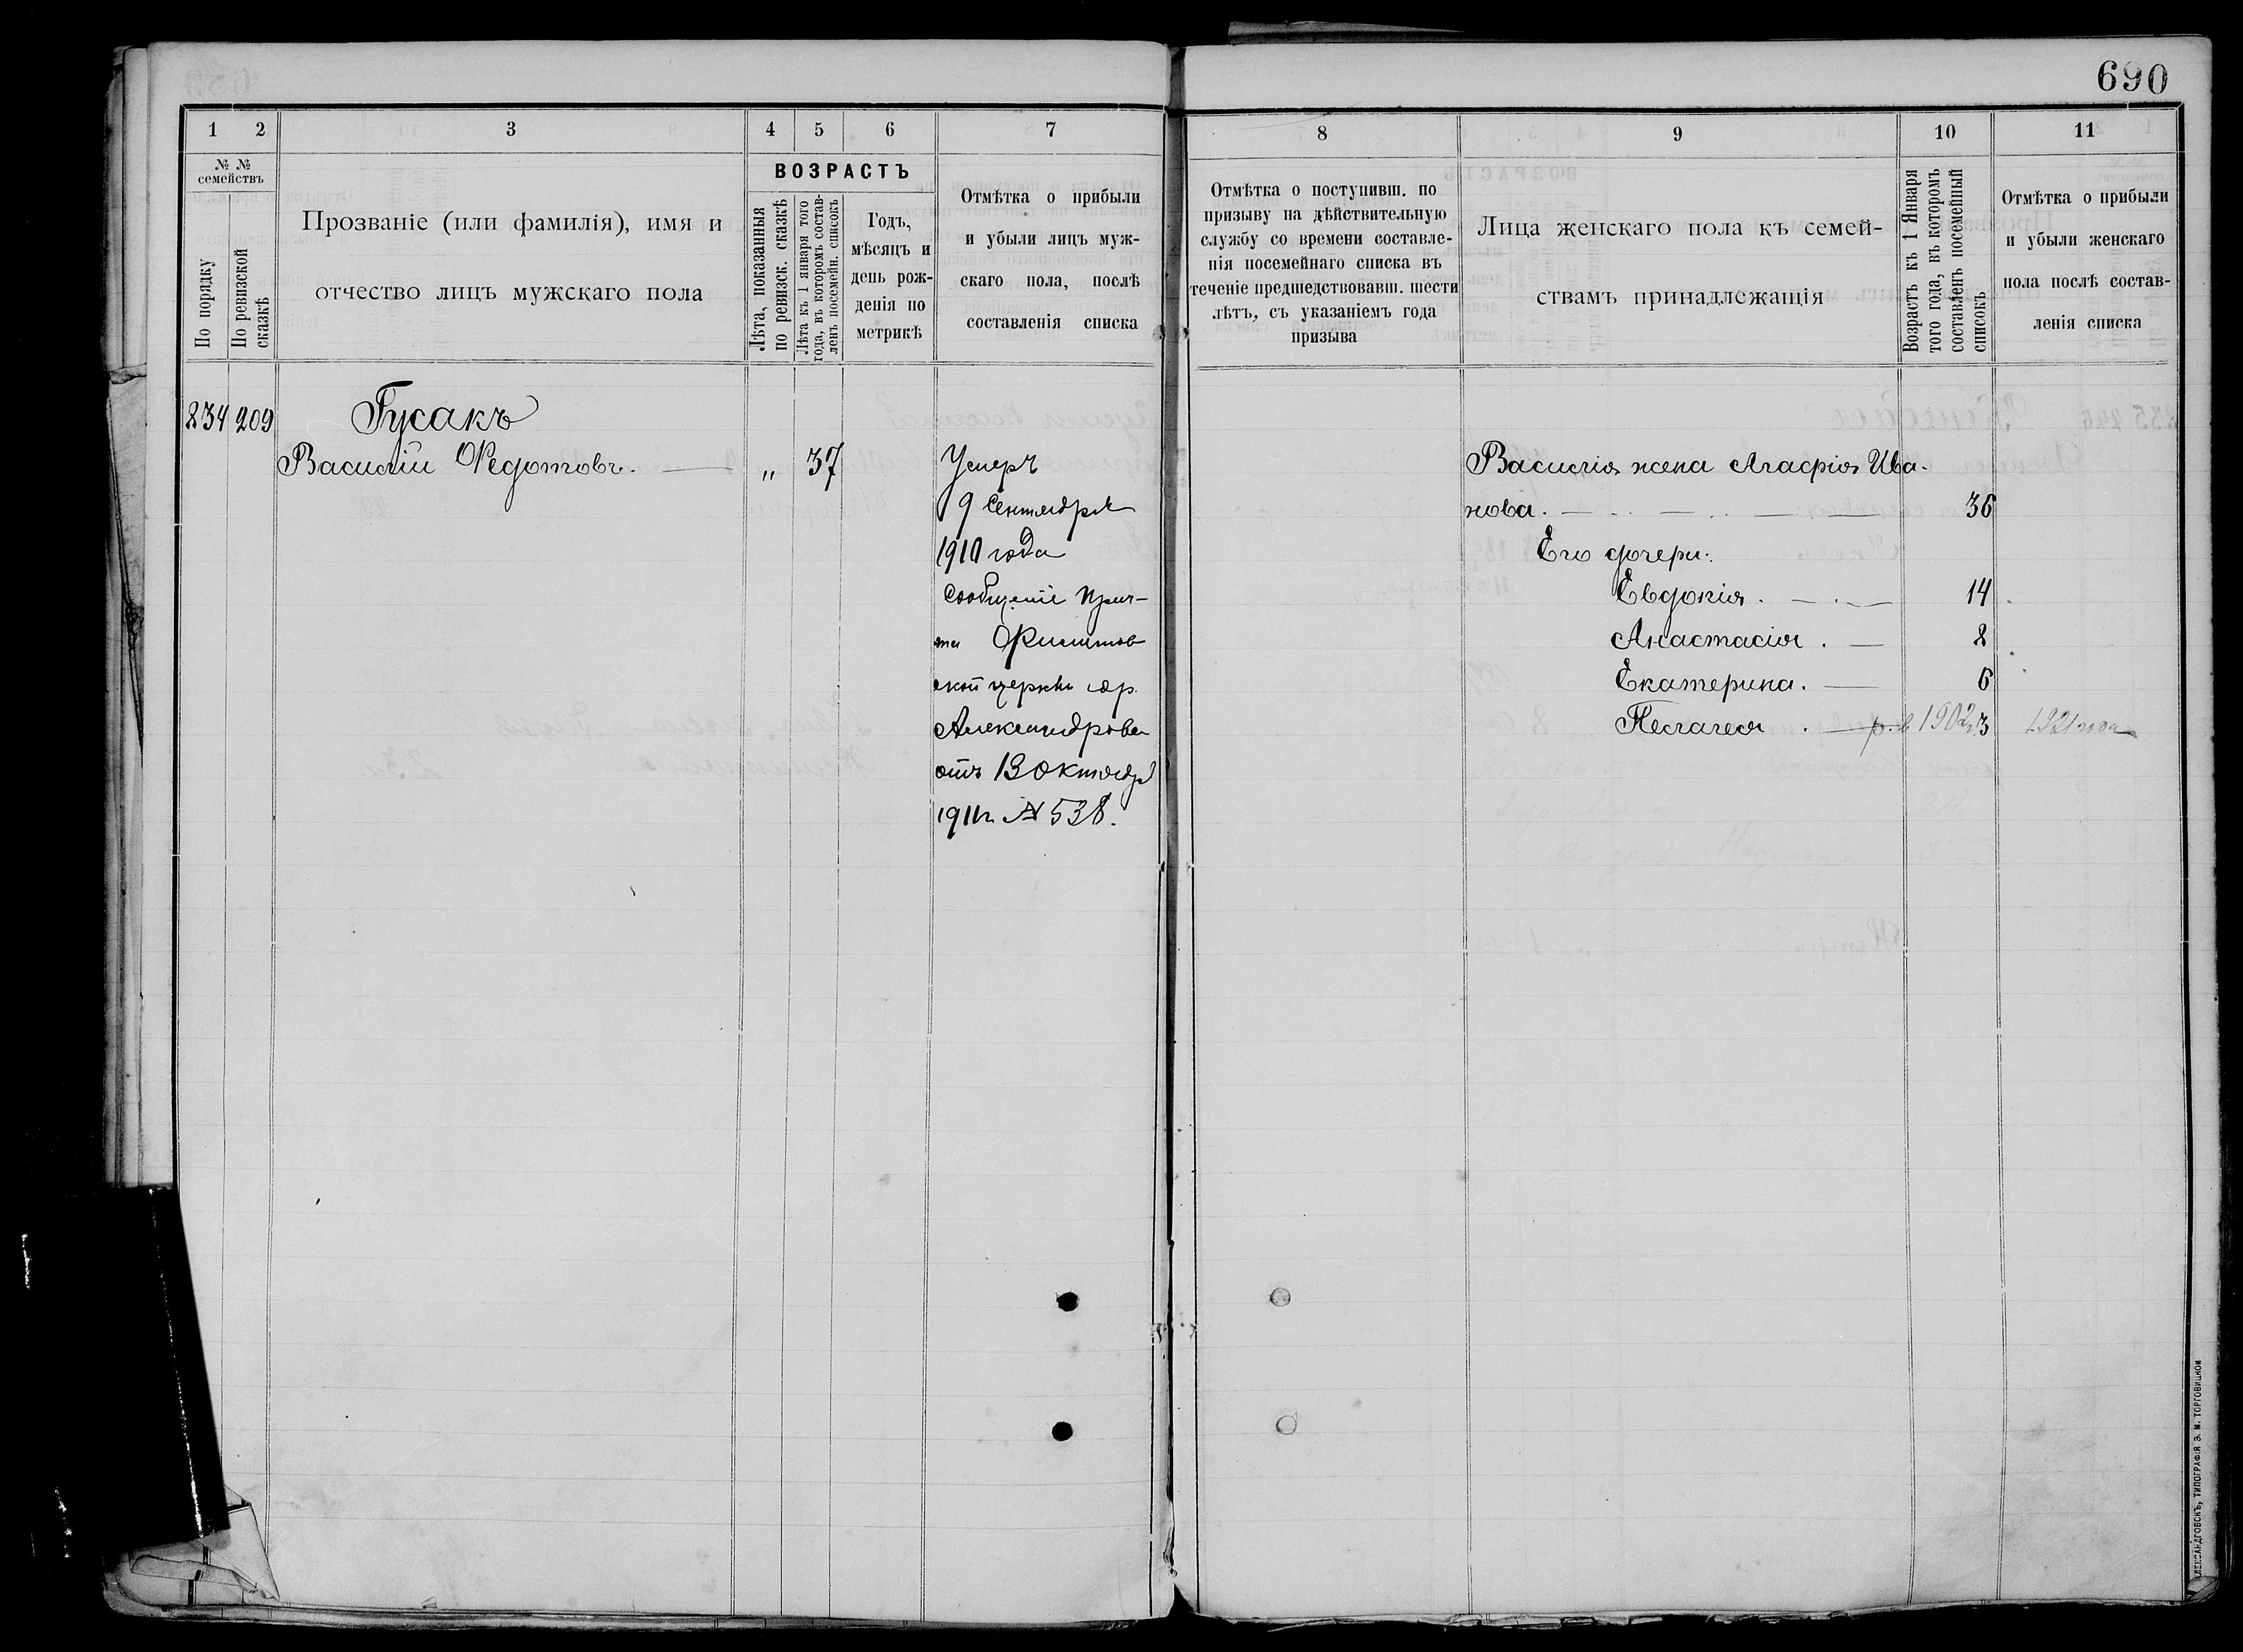 690
1 2 3 4 5 6 7
№ № семействъ
По порядку
По ревизской сказкѣ
Прозваніе (или фамилія), имя и
отчество лицъ мужскаго пола
ВОЗРАСТЪ
Лѣта, показанныя
по ревизск. сказкѣ
Лѣта къ 1 января того
года, въ которомъ состав-
ленъ посемейн. списокъ
Годъ,
мѣсяцъ и
день рож-
денія по
метрикѣ
Отмѣтка о прибыли
и убыли лицъ муж-
скаго пола, послѣ
составленія списка
834 209 Гусакъ
Василій Ѳедотовъ. „ 37
Умеръ
9 Сентября
1910 года
Сообщеніе Прич-
та
ской церкви
Александрова
отъ 13 октября
1911г № 538.
8 9 10 11
Отмѣтка о поступивш. по
призыву на дѣйствительную
службу со времени составле-
нія посемейнаго списка въ
теченіе предшедствовавш. шести
лѣтъ, съ указаніемъ года
призыва
Лица женскаго пола къ семей-
ствамъ принадлежащія
Возрастъ къ 1 Января
того года, въ которомъ
составленъ посемейный
списокъ
Отмѣтка о прибыли
и убыли женскаго
пола послѣ состав-
ленія списка
Василія жена Агафія Ива-
нова. 36
Его дочери:
Евдокія. 14
Анастасія. 8
Екатерина. 6
Пелагея. р. в 1902 г 3 1921 года
АЛЕКСАНДРОВСКЪ, ТИПОГРАФІЯ Э. М. ТОРГОВИЦКОЙ